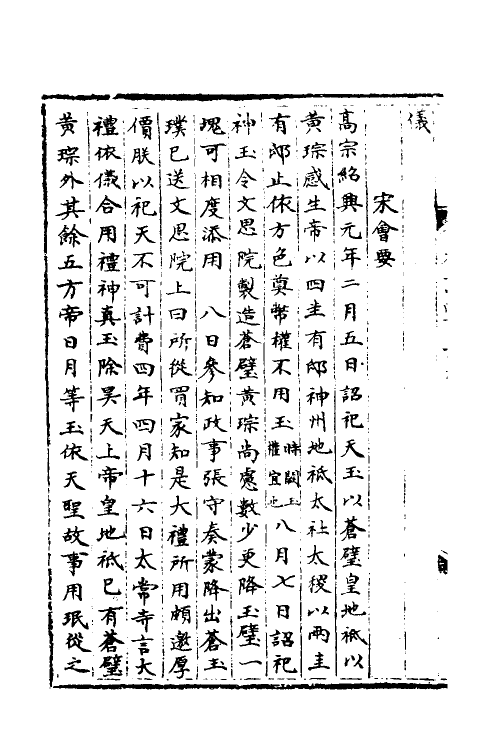 儀
宋會要
高宗紹興元年二月五日詔祀天玉以蒼璧皇地祇以
黄琮感生帝以四圭有邸神州地祇太社太稷以兩圭
有邸止依方色奠幣權不用玉時闕玉權宜也八月七日詔祀
神玉令文思院製造蒼璧黄琮尚慮數少更降玉璧一
塊可相度添用　八日參知政事張守奏蒙降出蒼玉
璞已送文思院上曰所從買家知是大禮所用頗邀厚
價朕以祀天不可計費四年四月十六日太常寺言大
禮依儀合用禮神真玉除昊天上帝皇地祇已有蒼璧
黄琮外其餘五方帝日月等玉依天聖故事用珉從之